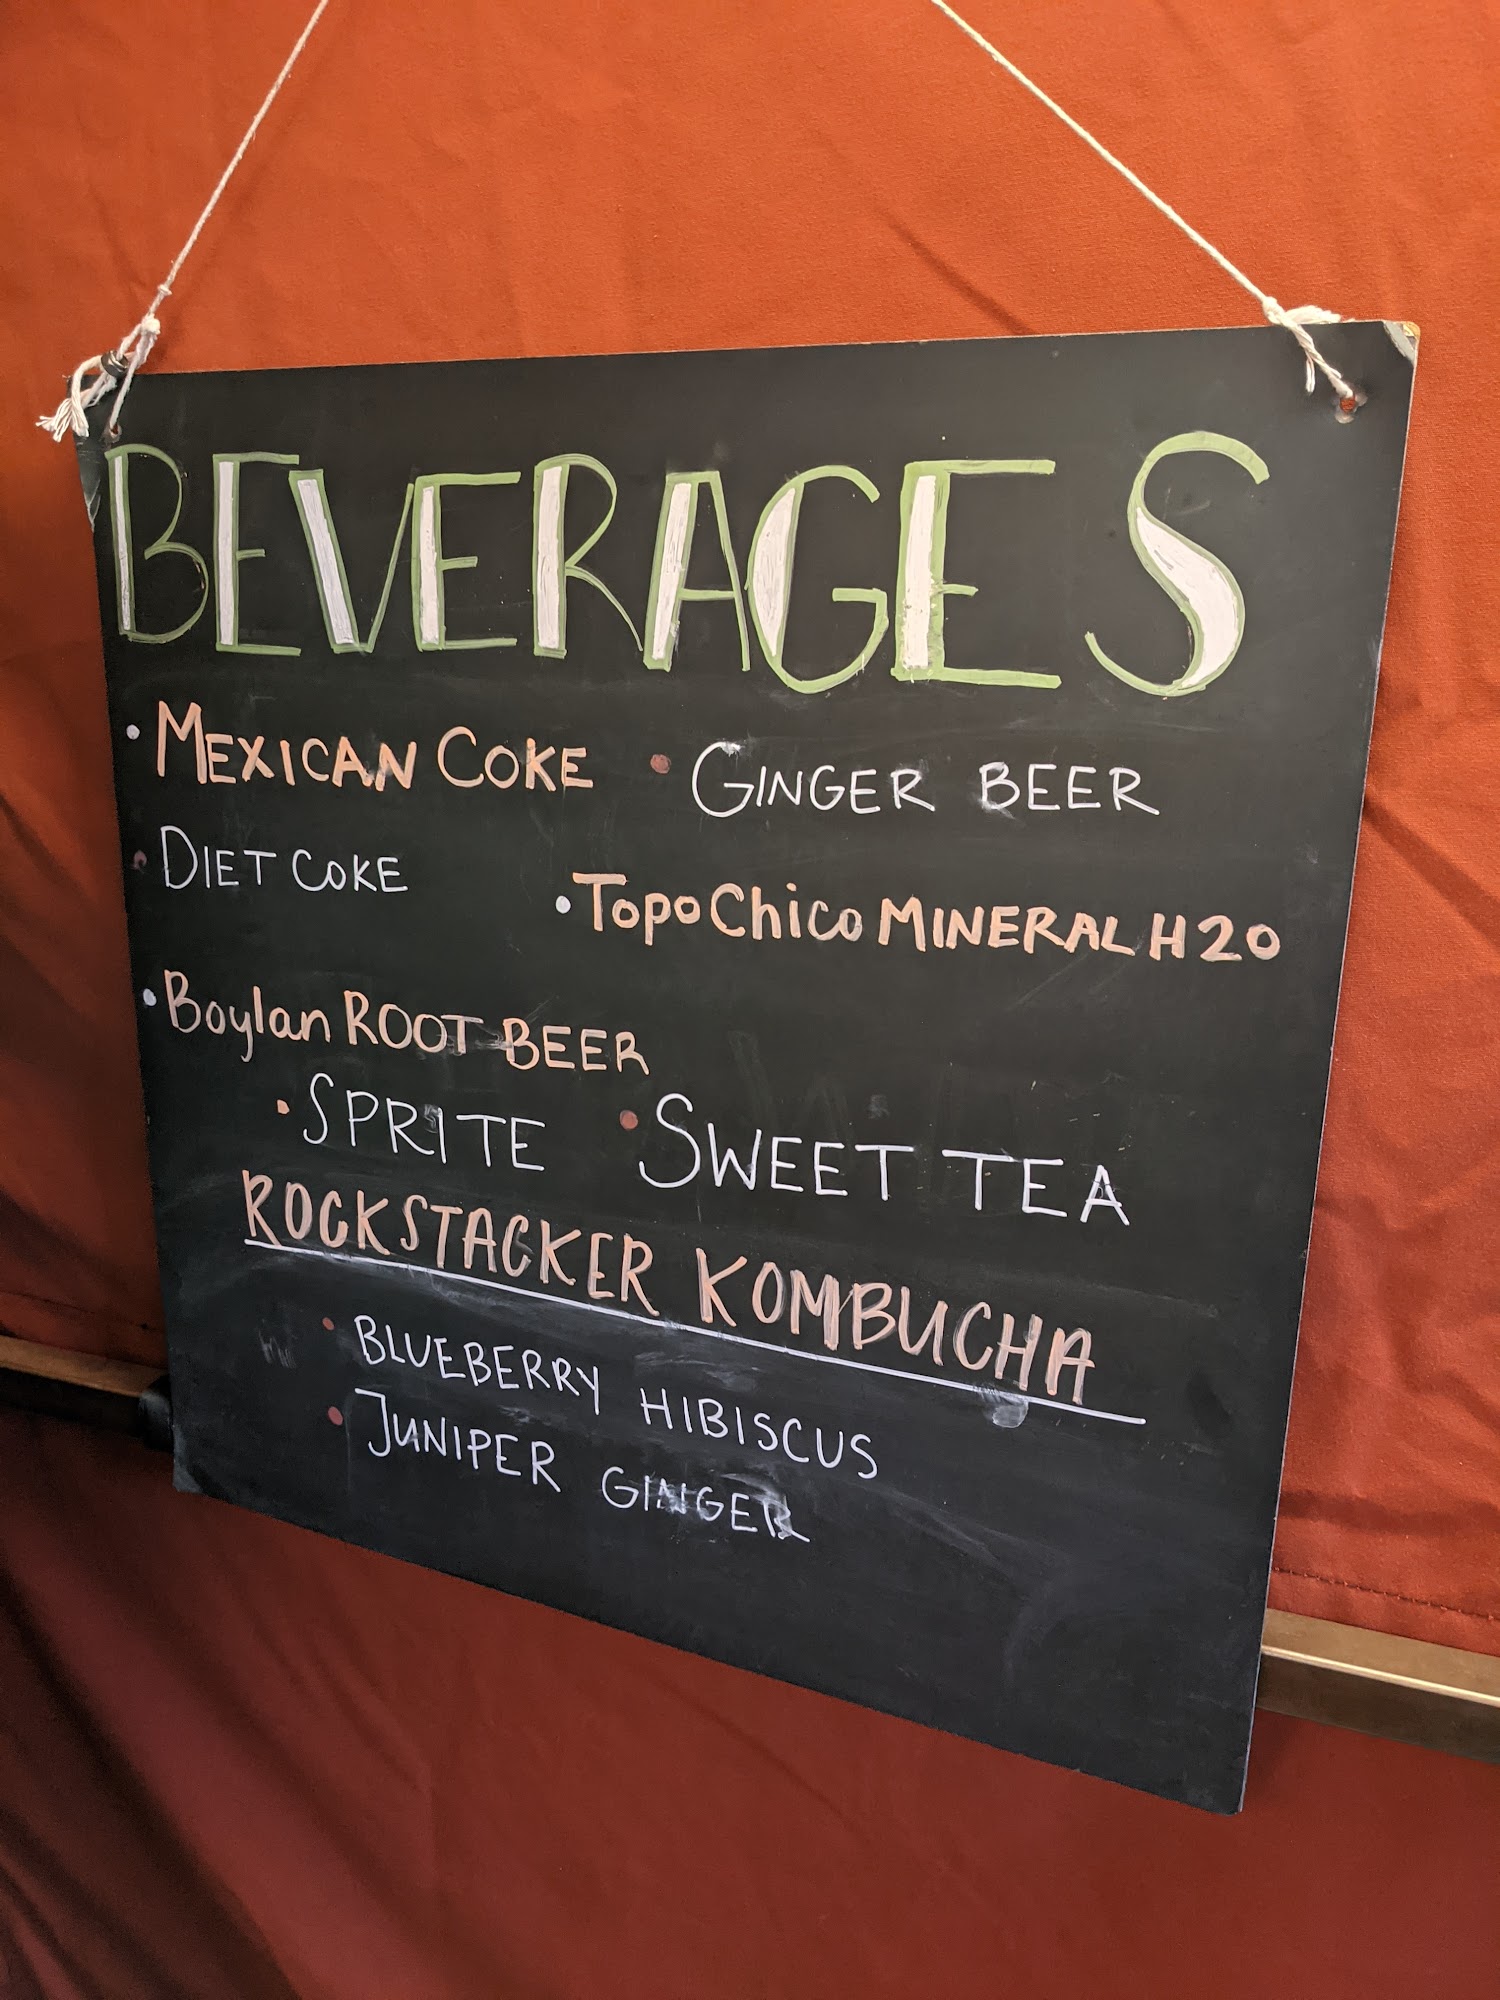 BEVERAGES
• MEXICAN COKE • GINGER BEER
• DIET COKE
• Topo Chico MINERAL H20
• Boylan ROOT BEER
• SPRITE • SWEET TEA
ROCKSTACKER KOMBUCHA
• BLUEBERRY HIBISCUS
• JUNIPER GINGER